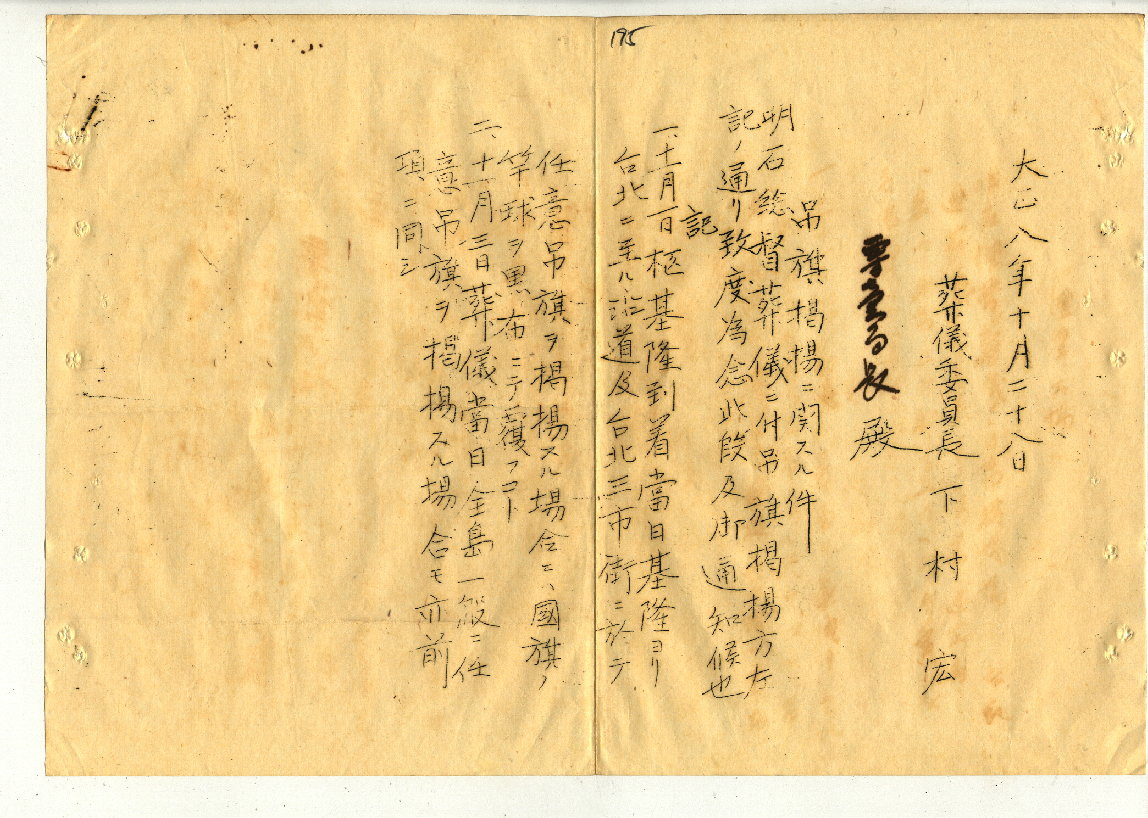 195
大正八年十月二十八日
葬儀委員長 下村 宏
專賣局長 殿
吊旗掲揚ニ関スル件
明石総督葬儀ニ付吊旗掲揚方左
記ノ通リ致度為念此段及御通知候也
記
一、十一月一日柩基隆到着當日基隆ヨリ
台北ニ至ル沿道及台北三市街ニ於テ
任意吊旗ヲ掲揚スル場合ニハ國旗ノ
竿球ヲ黒布ニテ覆フコト
二、十一月三日葬儀當日全島一般ニ任
意吊旗ヲ掲揚スル場合モ亦前
項ニ同シ